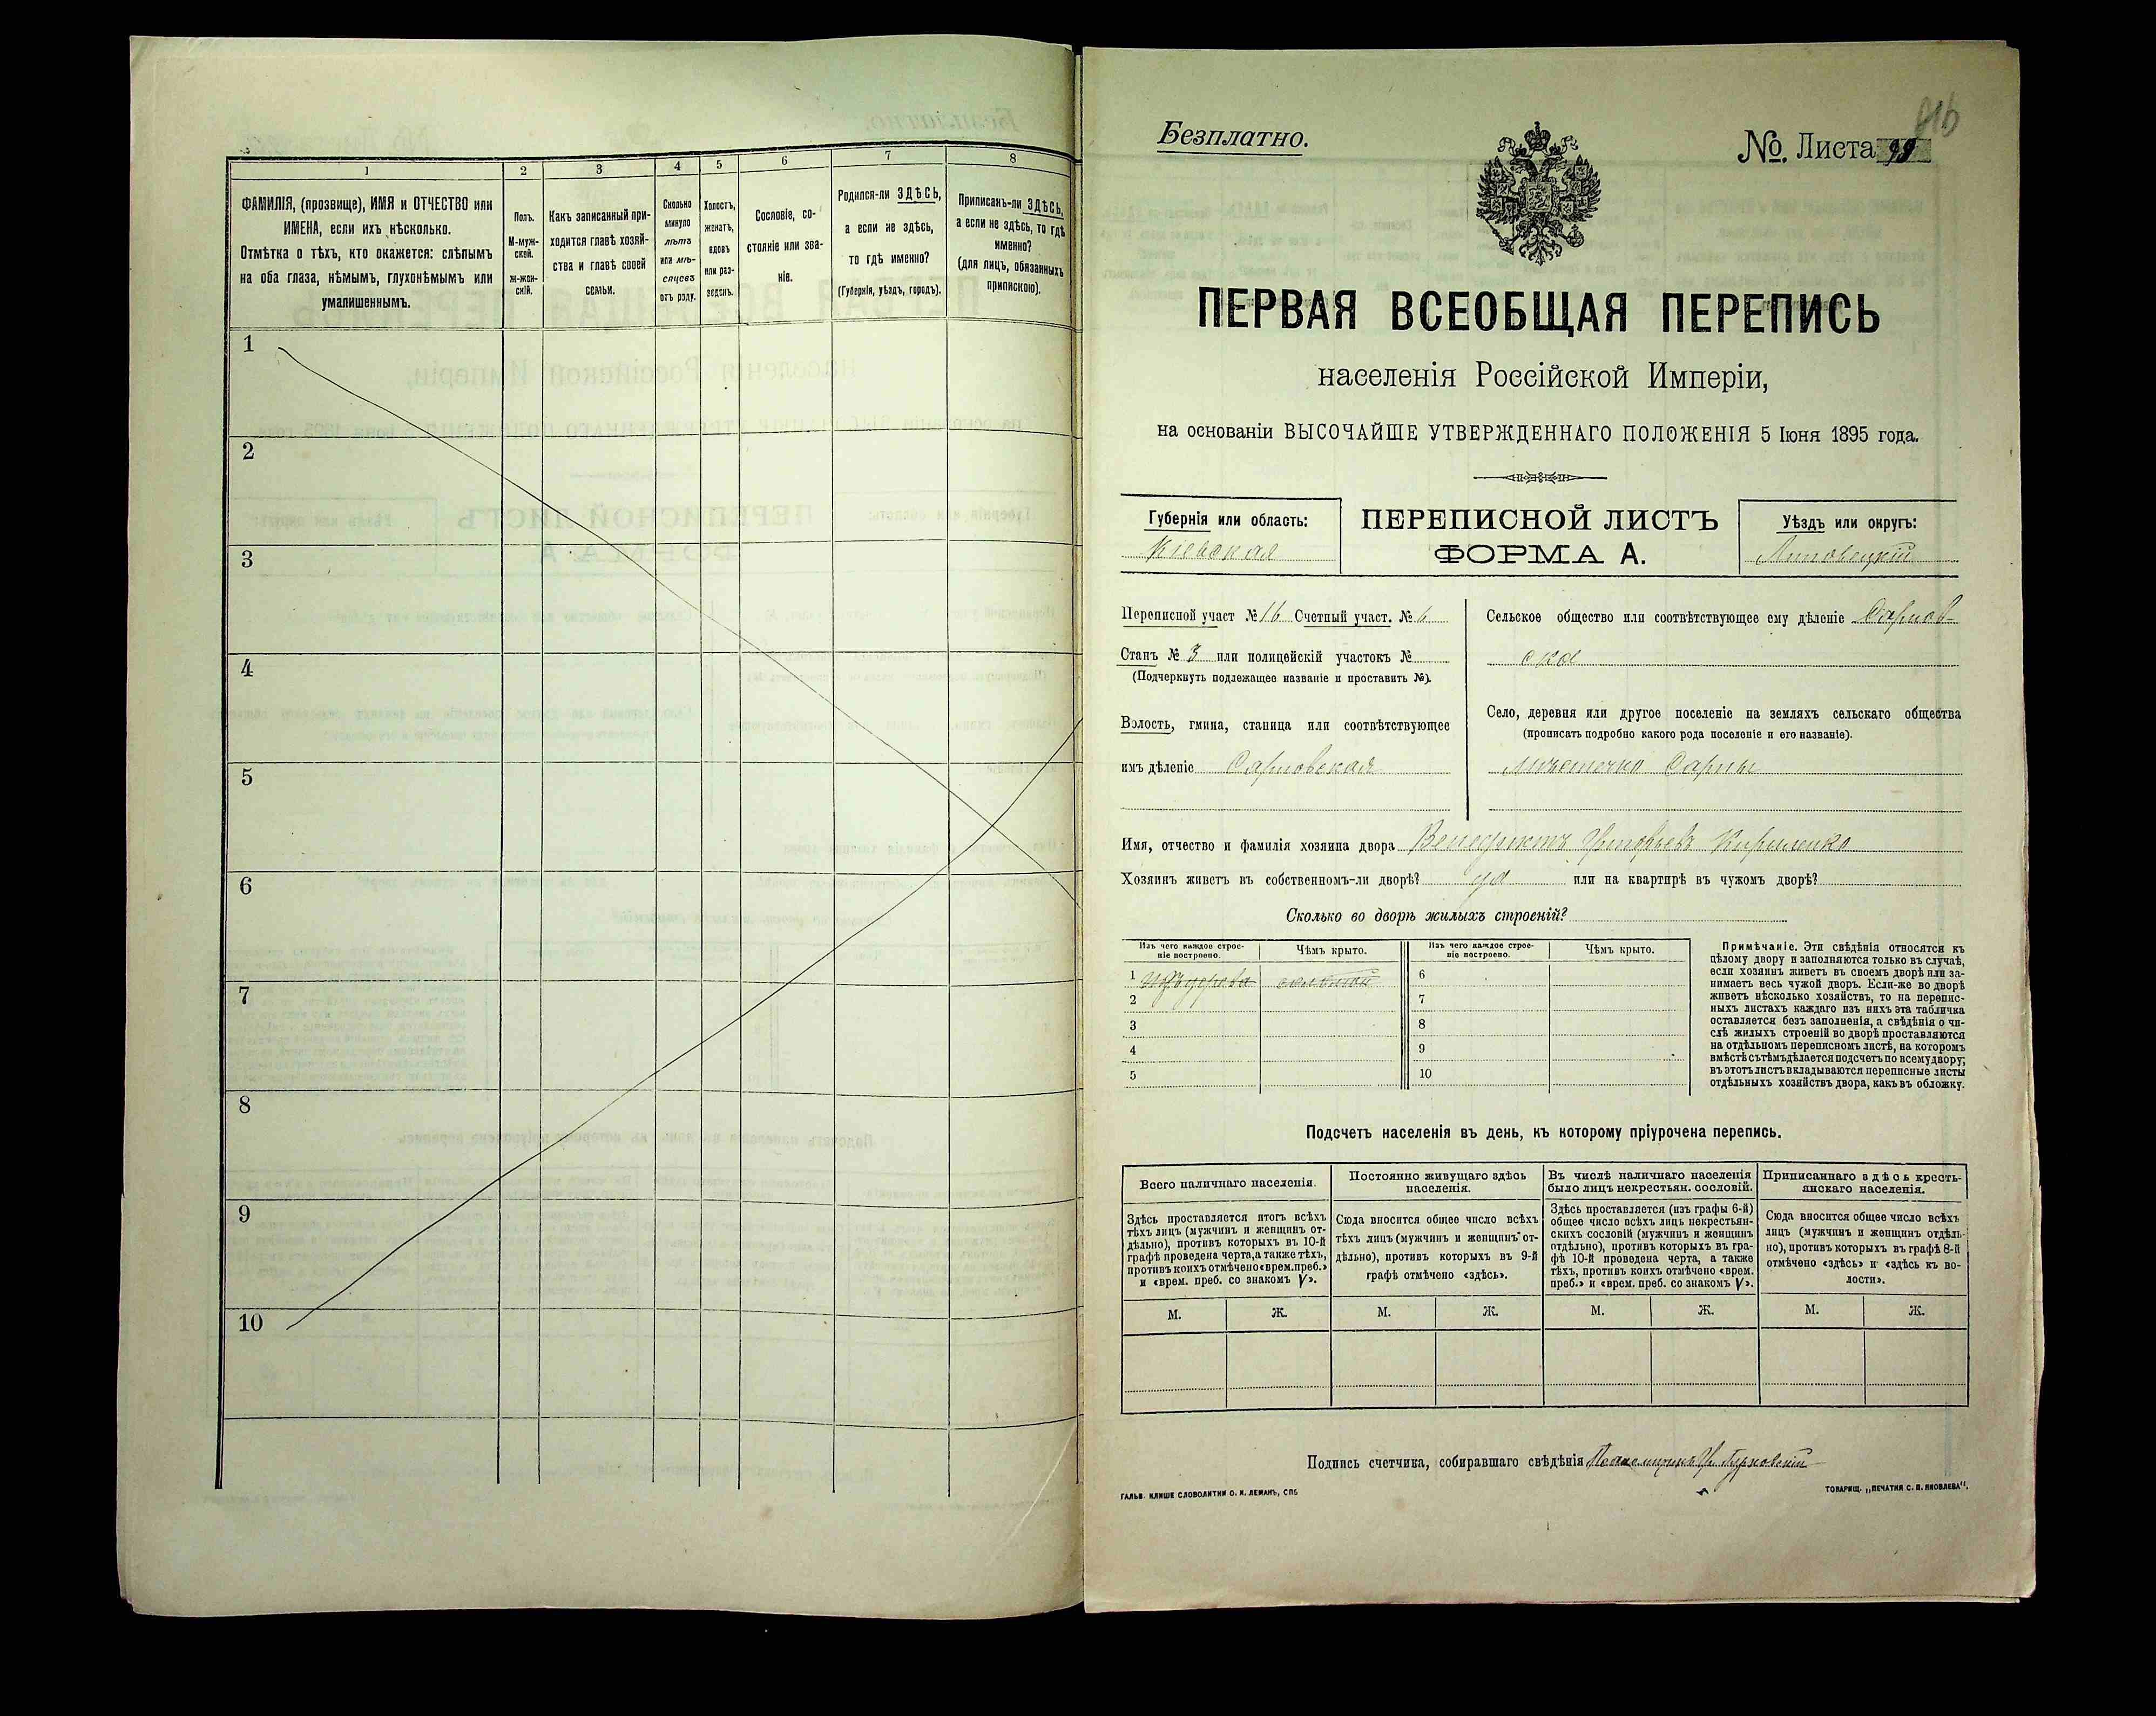 1
2
3
4
5
6
7
8
ФАМИЛІЯ, (прозвище), ИМЯ и ОТЧЕСТВО или
ИМЕНА, если ихъ нѣсколько.
Отмѣтка о тѣхъ, кто окажется: слѣпымъ
на оба глаза, нѣмымъ, глухонѣмымъ или
умалишеннымъ.
Полъ.
М-муж-
ской.
Ж-жен-
скій.
Какъ записанный при-
ходится главѣ хозяй-
ства и главѣ своей
семьи.
Сколько
минуло
лѣтъ
или мѣ-
сяцевъ
отъ роду.
Холостъ,
женатъ,
вдовъ
или раз-
веденъ.
Сословіе, со-
стояніе или зва-
ніе.
Родился-ли ЗДѢСЬ,
а если не здѣсь,
то гдѣ именно?
(Губернія, уѣздъ, городъ).
Приписанъ-ли ЗДѢСЬ,
а если не здѣсь, то гдѣ
именно?
(для лицъ, обязанныхъ
припискою).
1
2
3
4
5
6
7
8
9
10
Безплатно.
№. Листа 99
ПЕРВАЯ ВСЕОБЩАЯ ПЕРЕПИСЬ
населенія Россійской Имперіи,
на основаніи ВЫСОЧАЙШЕ УТВЕРЖДЕННАГО ПОЛОЖЕНІЯ 5 Іюня 1895 года.
Губернія или область:
Кіевская
ПЕРЕПИСНОЙ ЛИСТЪ
ФОРМА А.
Уѣздъ или округъ:
Липовецкій
Переписной участ № 16 Счетный участ. № 6
Станъ № 3 или полицейскій участокъ №
(Подчеркнуть подлежащее названіе и проставить №).
Волость, гмина, станица или соотвѣтствующее
имъ дѣленіе Сарновская
Сельское общество или соотвѣтствующее ему дѣленіе Сарнов-
ское
Село, деревня или другое поселеніе на земляхъ сельскаго общества
(прописать подробно какого рода поселеніе и его названіе).
Мѣстечко Сарны
Имя, отчество и фамилія хозяина двора Венедиктъ Григорьевъ Кириленко
Хозяинъ живетъ въ собственномъ-ли дворѣ? да или на квартирѣ въ чужомъ дворѣ?
Сколько во дворѣ жилыхъ строеній?
Изъ чего каждое строе-
ніе построено.
Чѣмъ крыто.
Изъ чего каждое строе-
ніе построено.
Чѣмъ крыто.
1 Изъ дерева соломой
2
3
4
5
6
7
8
9
10
Примѣчаніе. Эти свѣдѣнія относятся къ
цѣлому двору и заполняются только въ случаѣ,
если хозяинъ живетъ въ своемъ дворѣ или за-
нимаетъ весь чужой дворъ. Если-же во дворѣ
живетъ нѣсколько хозяйствъ, то на перепис-
ныхъ листахъ каждаго изъ нихъ эта табличка
оставляется безъ заполненія, а свѣдѣнія о чи-
слѣ жилыхъ строеній во дворѣ проставляются
на отдѣльномъ переписномъ листѣ, на которомъ
вмѣстѣ съ тѣмъ дѣлается подсчетъ по всему двору;
въ этотъ листъ вкладываются переписные листы
отдѣльныхъ хозяйствъ двора, какъ въ обложку.
Подсчетъ населенія въ день, къ которому пріурочена перепись.
Всего наличнаго населенія.
Здѣсь проставляется итогъ всѣхъ
тѣхъ лицъ (мужчинъ и женщинъ от-
дѣльно), противъ которыхъ въ 10-й
графѣ проведена черта, а также тѣхъ,
противъ коихъ отмѣчено «врем. преб.»
и «врем. преб. со знакомъ V».
Постоянно живущаго здѣсь
населенія.
Сюда вносится общее число всѣхъ
тѣхъ лицъ (мужчинъ и женщинъ от-
дѣльно), противъ которыхъ въ 9-й
графѣ отмѣчено «здѣсь».
Въ числѣ наличнаго населенія
было лицъ некрестьян. сословій.
Здѣсь проставляется (изъ графы 6-й)
общее число всѣхъ лицъ некрестьян-
скихъ сословій (мужчинъ и женщинъ
отдѣльно), противъ которыхъ въ гра-
фѣ 10-й проведена черта, а также
тѣхъ, противъ коихъ отмѣчено «врем.
преб.» и «врем. преб. со знакомъ V».
Приписаннаго здѣсь кресть-
янскаго населенія.
Сюда вносится общее число всѣхъ
лицъ (мужчинъ и женщинъ отдѣль-
но), противъ которыхъ въ графѣ 8-й
отмѣчено «здѣсь» и «здѣсь къ во-
лости».
М. Ж. М. Ж. М. Ж. М. Ж.
Подпись счетчика, собиравшаго свѣдѣнія
ГАЛЬВ. КЛИШЕ СЛОВОЛИТНИ О. И. ЛЕМАНЪ, СПБ
ТОВАРИЩ. „ПЕЧАТНЯ С. П. ЯКОВЛЕВА“.